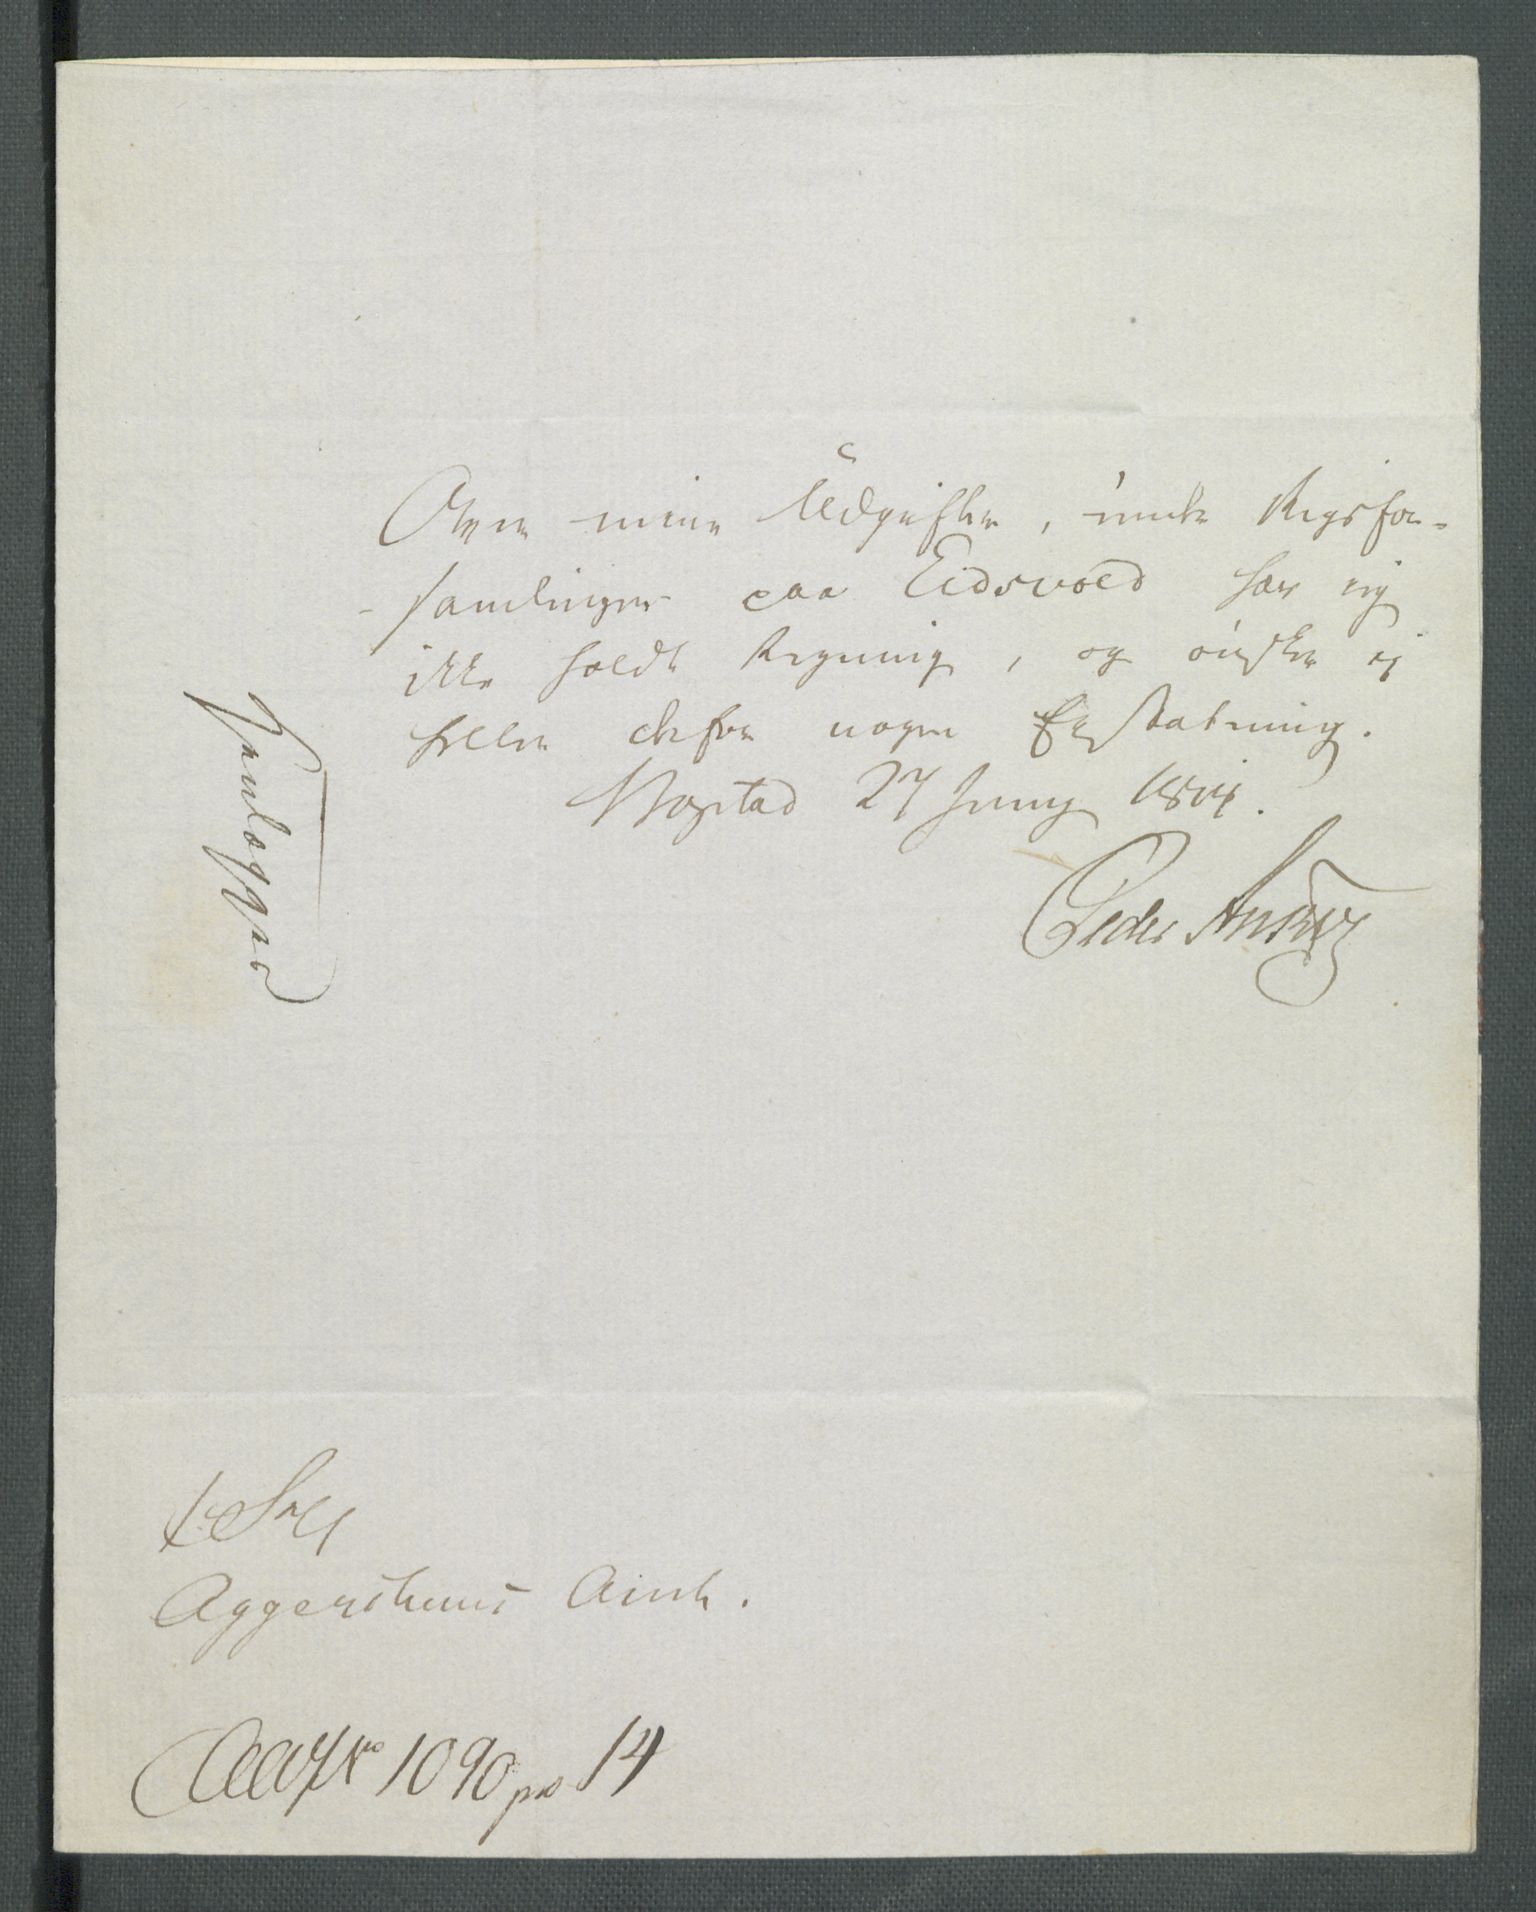 Over mine Udgifter, under Rigsfor-
-samlingen paa Eidsvold har jeg
ikke holdt Regning, og ønsker ej
heller derfor nogen Erstatning.
Bogstad 27 Juny 1814.
Peder Anker
Henlægges
Aggershuus Amt.
1090 pro 14